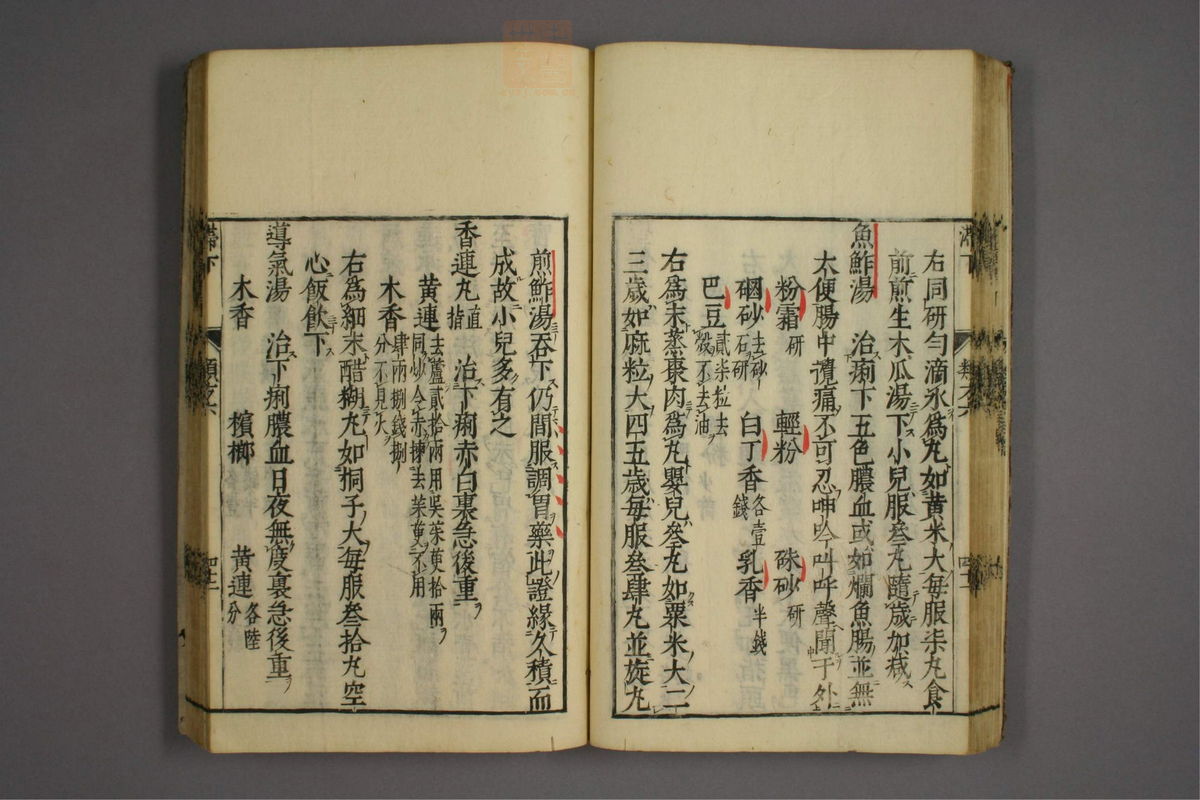 右同研勻滴水為丸如黄米大每服柒丸食
前煎生木瓜湯下小兒服叄丸隨歲加减
魚鮓湯 治痢下五色膿血或如爛魚腸並無
大便腸中攪痛不可忍呻吟叫呼聲聞于外
粉霜研 輕粉 硃砂研
硇砂去砂石研 白丁香各壹錢 乳香半錢
巴豆貳柒粒去殼不去油
右為末蒸棗肉為丸嬰兒叄丸如粟米大二
三歲如麻粒大四五歲每服叄肆丸並旋丸
煎鮓湯吞下仍間服調胃藥此證緣久積而
成故小兒多有之
香連丸直指 治下痢赤白裏急後重
黄連去蘆貳拾兩用吳茱萸拾兩同炒令赤揀去茱萸不用
木香肆兩捌錢捌分不見火
右為細末醋糊丸如桐子大每服叄拾丸空
心飯飲下
導氣湯 治下痢膿血日夜無度裏急後重
木香 檳榔 黄連各陸分
滯下
類之六